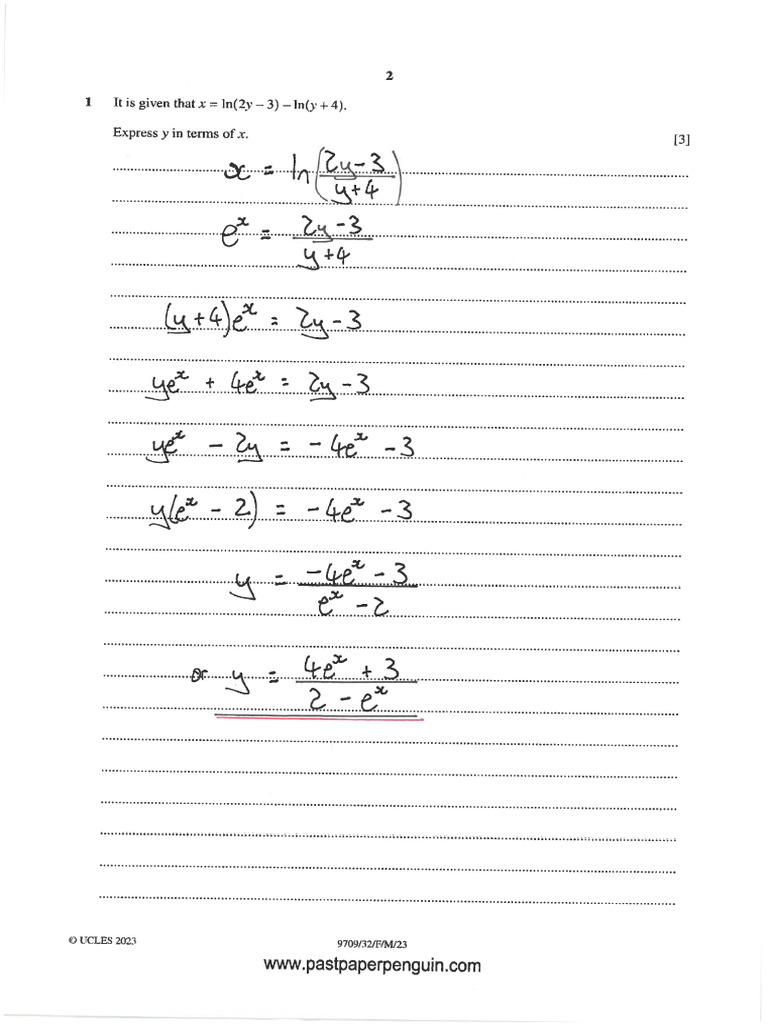 2
1 It is given that x = ln(2y – 3) – ln(y + 4).
Express y in terms of x. [3]
x = ln((2y – 3)/(y + 4))
e^x = (2y – 3)/(y + 4)
(y + 4)e^x = 2y – 3
ye^x + 4e^x = 2y – 3
ye^x – 2y = – 4e^x – 3
y(e^x – 2) = – 4e^x – 3
y = (– 4e^x – 3)/(e^x – 2)
or y = (4e^x + 3)/(2 – e^x)
© UCLES 2023 9709/32/F/M/23
www.pastpaperpenguin.com